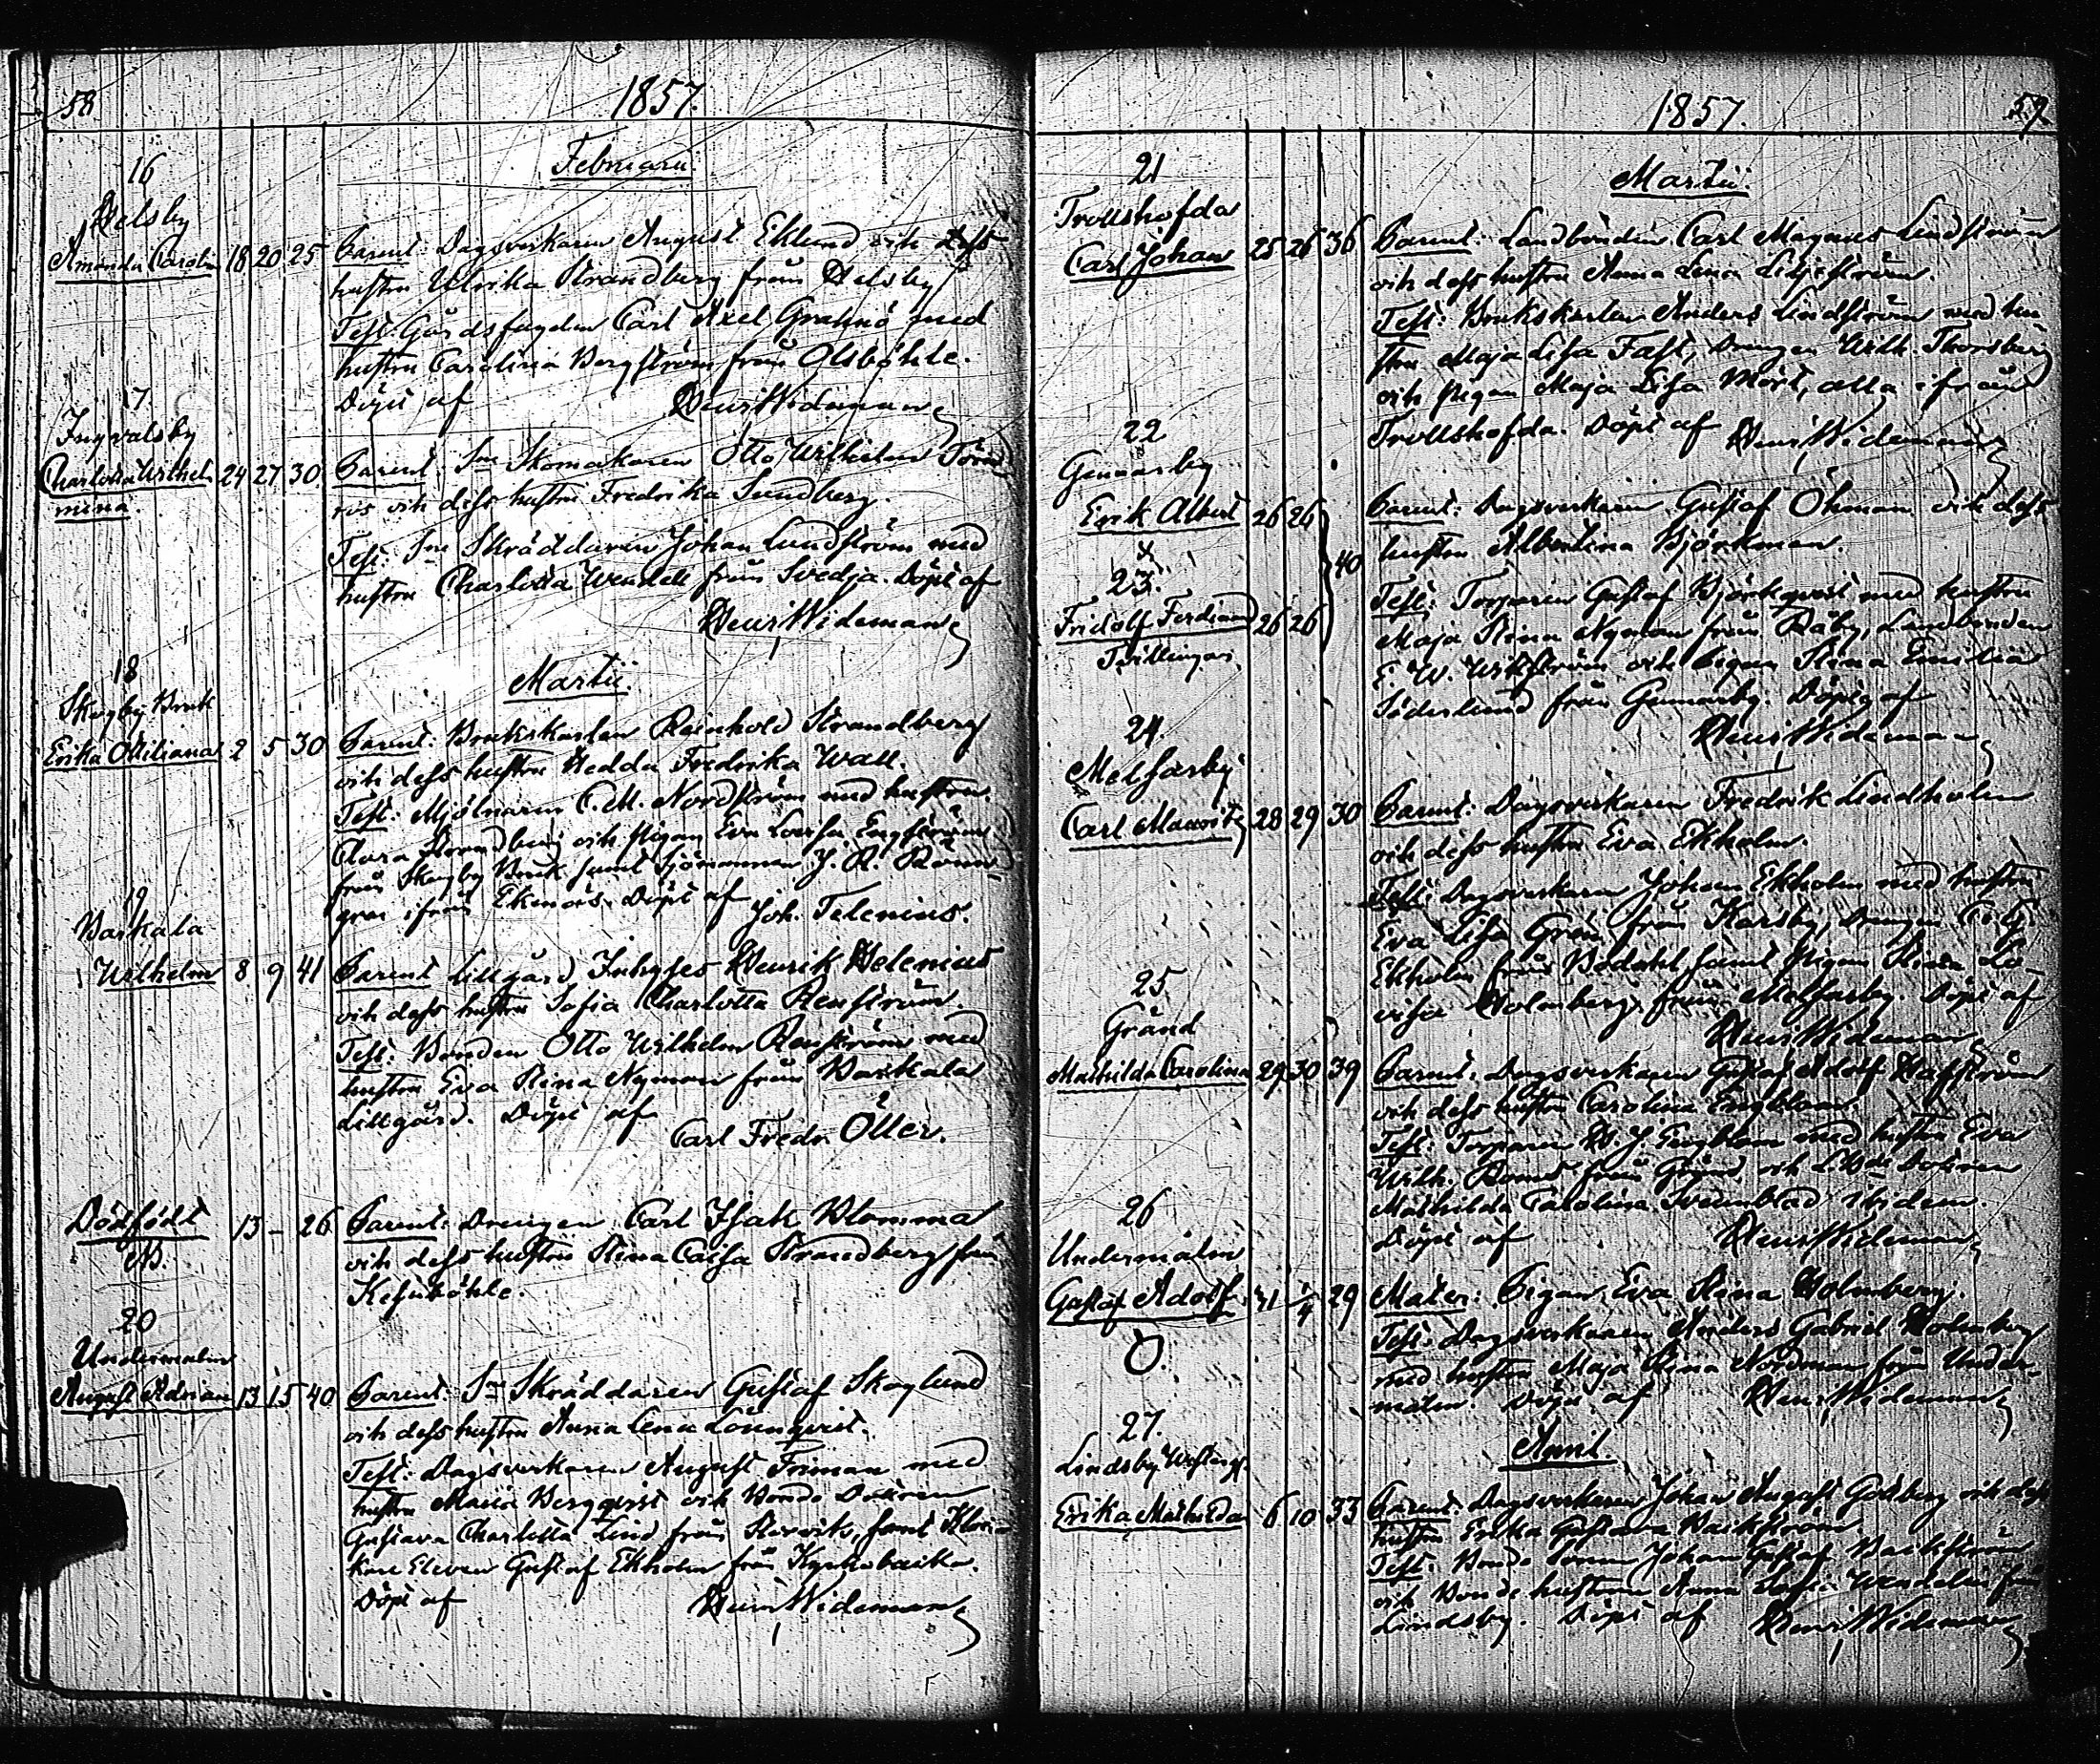 58
1857.
Februarii
16
Helsby
Amanda Carolin 18 20 25 Parent: Dagsverkaren August Eklund och dess
hustru Ulrika Strandberg från Helsby
Test: Gårdsfogden Carl Axel Grahnö med
hustru Carolina Bergström från Olsböhle.
Döpt af Henr Wideman
17
Ingvalsby
Charlotta Wilhel- 24 27 30 Parent: Sne Skomakaren Otto Wilhelm Törn
mina. ros och dess hustru Fredrika Sundberg.
Test: Sne Skräddaren Johan Lundström med
hustru Charlotta Wendell från Svedja. Döpt af
Henr Wideman
Martii.
18
Skogby Bruk
Erika Ottiliana 2 5 30 Parent: Brukskarlen Reinhold Strandberg
och dess hustru Hedda Fredrika Wall.
Test: Mjölnaren C. M. Nordström med hustru
Clara Strandberg och pigan Eva Lovisa Engström
från Skogby Bruk samt Sjömannen J. R. Rönn-
gren ifrån Ekenäs. Döpt af Joh. Telenius.
19
Vaskala
Wilhelm 8 9 41 Parent Lillgård Inhyses Henrik Helenius
och dess hustru Sofia Charlotta Renström.
Test: Bonden Otto Wilhelm Renström med
hustru Eva Stina Nyman från Vaskala
Lillgård. Döpt af
Carl Fredr. Öller.
Dödfödt 13 – 26 Parent: Drengen Carl Isak Blomma
och dess hustru Stina Caisa Strandberg från
Kesuböhle.
20
Undermalm
August Adrian 13 15 40 Parent: Sne Skräddaren Gustaf Skoglund
och dess hustru Anna Lena Lönnqvist.
Test: Dagsverkaren August Friman med
hustru Maria Bergqvist och Bonde Dottren
Gustava Charlotta Lind från Starvik, samt Kloc-
kare Eleven Gustaf Ekholm från Kyrkobacka.
Döpt af Henr Wideman
1857. 59
Martii
21
Trollshofda
Carl Johan 25 26 36 Parent: Landbonden Carl Magnus Lindström
och dess hustru Anna Lena Liljeström.
Test: Brukskarlen Anders Lindström med hu
stru Maja Lisa Fast, Drengen Wilh. Thorsberg
och pigan Maja Lisa Mört, alla ifrån
Trollshofda. Döpt af Henr Wideman
22
Gennäsby
Erik Albert 26 26 Parent: Dagsverkaren Gustaf Öhman och dess
40 hustru Albertina Björkman.
23.
Fridolf Ferdinand 26 26 Test: Torparen Gustaf Björkqvist med hustru
Tvillingar. Maja Stina Nyman från Råby, Landbonden
E. W. Wikström och Pigan Stina Emilia
Söderlund från Gennäsby. Döpt af
Henr Wideman
24.
Melsarby
Carl Mauritz 28 29 30 Parent: Dagsverkaren Fredrik Lindholm
och dess hustru Eva Ekholm.
Test: Dagsverkaren Johan Ekholm med hustru
Eva Lisa Grén från Karsby, Drengen C. G.
Ekholm från Bödahl samt Pigan Stina Lo-
visa Holmberg från Melsarby. Döpt af
Henr Wideman
25
Gränd
Mathilda Carolina 29 30 39 Parent: Dagsverkaren Gustaf Adolf Hafström
och dess hustru Carolina Engblom.
Test: Torparen H. J. Engblom med hustru Eva
Wilh. från Gränd, och Dottren
Mathilda Carolina Svanblad ibidem.
Döpt af Henr Wideman
26
Undermalm
Gustaf Adolf 31 1/4 29 Mater: Pigan Eva Stina Holmberg.
O. Test: Dagsverkaren Anders Gabriel Holmberg
med hustru Maja Stina Nordman från Under-
malm. Döpt af Henr Wideman
April.
27.
Lindsby Westerg.
Erika Mathilda 6 10 33 Parent: Dagsverkaren Johan August Goldberg och dess
hustru Erika Gustava Backström.
Test: Bonde Sonen Johan Gustaf Backström
och Bonde hustrun Anna Wendelin från
Lindsby. Döpt af Henr Wideman